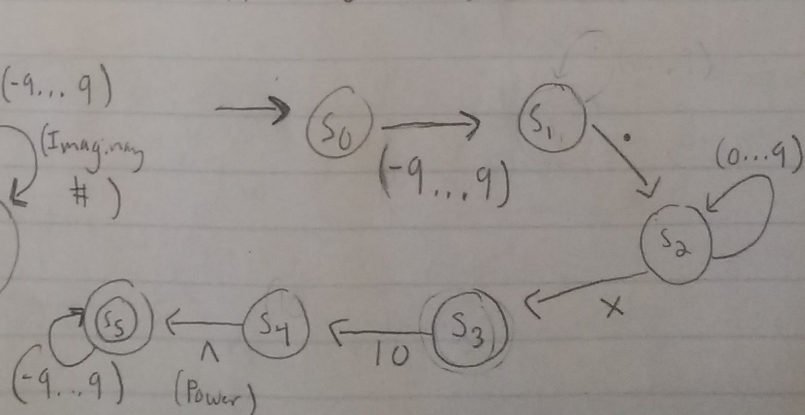 (-9... 9)
(Imaginay
# )
S0
(-9...9)
S1
.
S2
(0...9)
x
S3
10
S4
^
(Power)
S5
(-9...9)